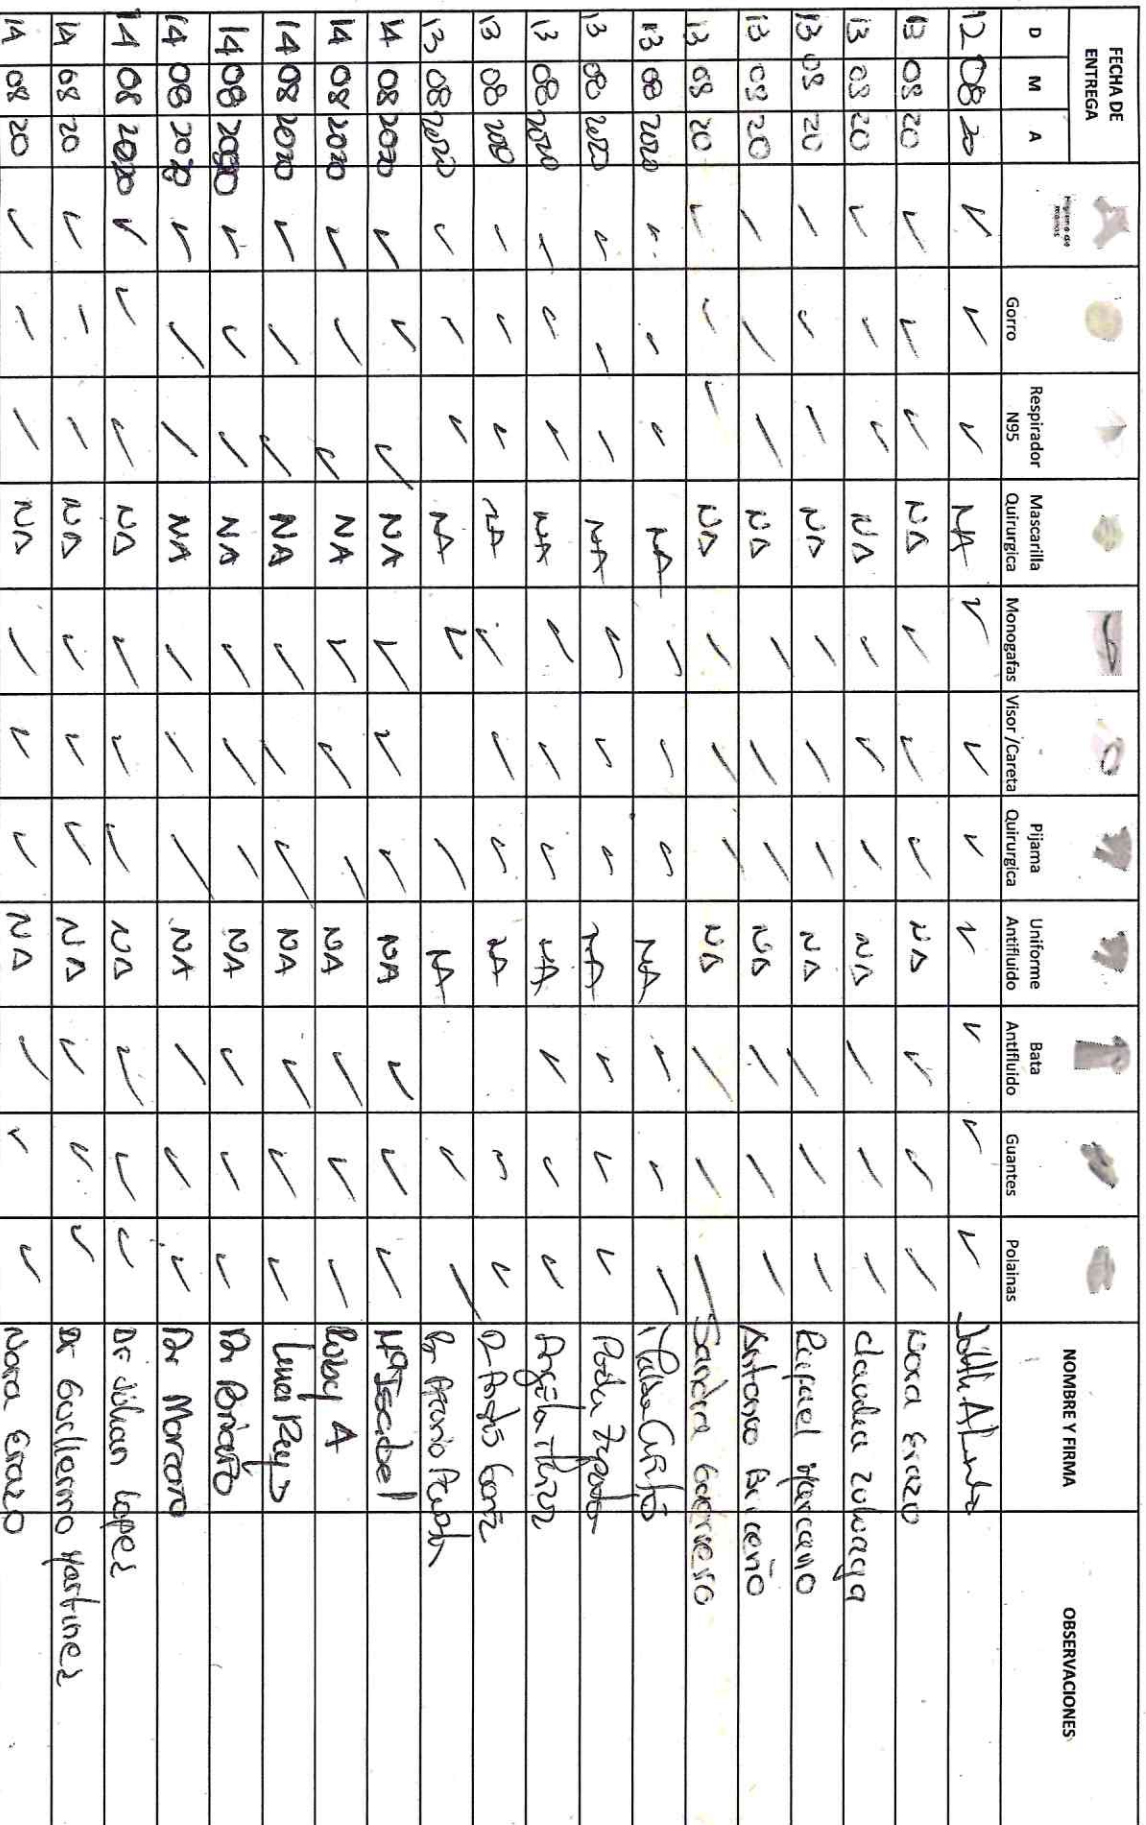 FECHA DE ENTREGA Higiene de manos NOMBRE Y FIRMA OBSERVACIONES
D M A Gorro Respirador N95 Mascarilla Quirurgica Monogafas Visor /Careta Pijama Quirurgica Uniforme Antifluido Bata Antifluido Guantes Polainas
12 08 20 ✓ ✓ ✓ NA ✓ ✓ ✓ ✓ ✓ ✓ ✓
13 08 20 ✓ ✓ ✓ NA ✓ ✓ ✓ NA ✓ ✓ ✓ Nora Erazo
13 08 20 ✓ ✓ ✓ NA ✓ ✓ ✓ NA ✓ ✓ ✓ Claudia Zuluaga
13 08 20 ✓ ✓ ✓ NA ✓ ✓ ✓ NA ✓ ✓ ✓ Rafael Marcano
13 08 20 ✓ ✓ ✓ NA ✓ ✓ ✓ NA ✓ ✓ ✓ Antonio Briceño
13 08 20 ✓ ✓ ✓ NA ✓ ✓ ✓ NA ✓ ✓ ✓ Sandra Guerrero
13 08 2020 ✓ ✓ ✓ NA ✓ ✓ ✓ NA ✓ ✓ ✓
13 08 2020 ✓ ✓ ✓ NA ✓ ✓ ✓ NA ✓ ✓ ✓
13 08 2020 ✓ ✓ ✓ NA ✓ ✓ ✓ NA ✓ ✓ ✓
13 08 2020 ✓ ✓ ✓ NA ✓ ✓ ✓ NA ✓ ✓ Dr
13 08 2020 ✓ ✓ ✓ NA ✓ ✓ NA ✓ ✓ Dr
14 08 2020 ✓ ✓ ✓ NA ✓ ✓ ✓ NA ✓ ✓ ✓ Mª Isabel
14 08 2020 ✓ ✓ ✓ NA ✓ ✓ ✓ NA ✓ ✓ ✓ Roby A
14 08 2020 ✓ ✓ ✓ NA ✓ ✓ ✓ NA ✓ ✓ ✓
14 08 2020 ✓ ✓ ✓ NA ✓ ✓ ✓ NA ✓ ✓ ✓ Dr Briceño
14 08 2020 ✓ ✓ ✓ NA ✓ ✓ ✓ NA ✓ ✓ ✓ Dr Marcano
14 08 2020 ✓ ✓ ✓ NA ✓ ✓ ✓ NA ✓ ✓ ✓ Dr Julian Lopez
14 08 20 ✓ ✓ ✓ NA ✓ ✓ ✓ NA ✓ ✓ ✓ Dr Guillermo Martinez
14 08 20 ✓ ✓ ✓ NA ✓ ✓ ✓ NA ✓ ✓ ✓ Nora Erazo